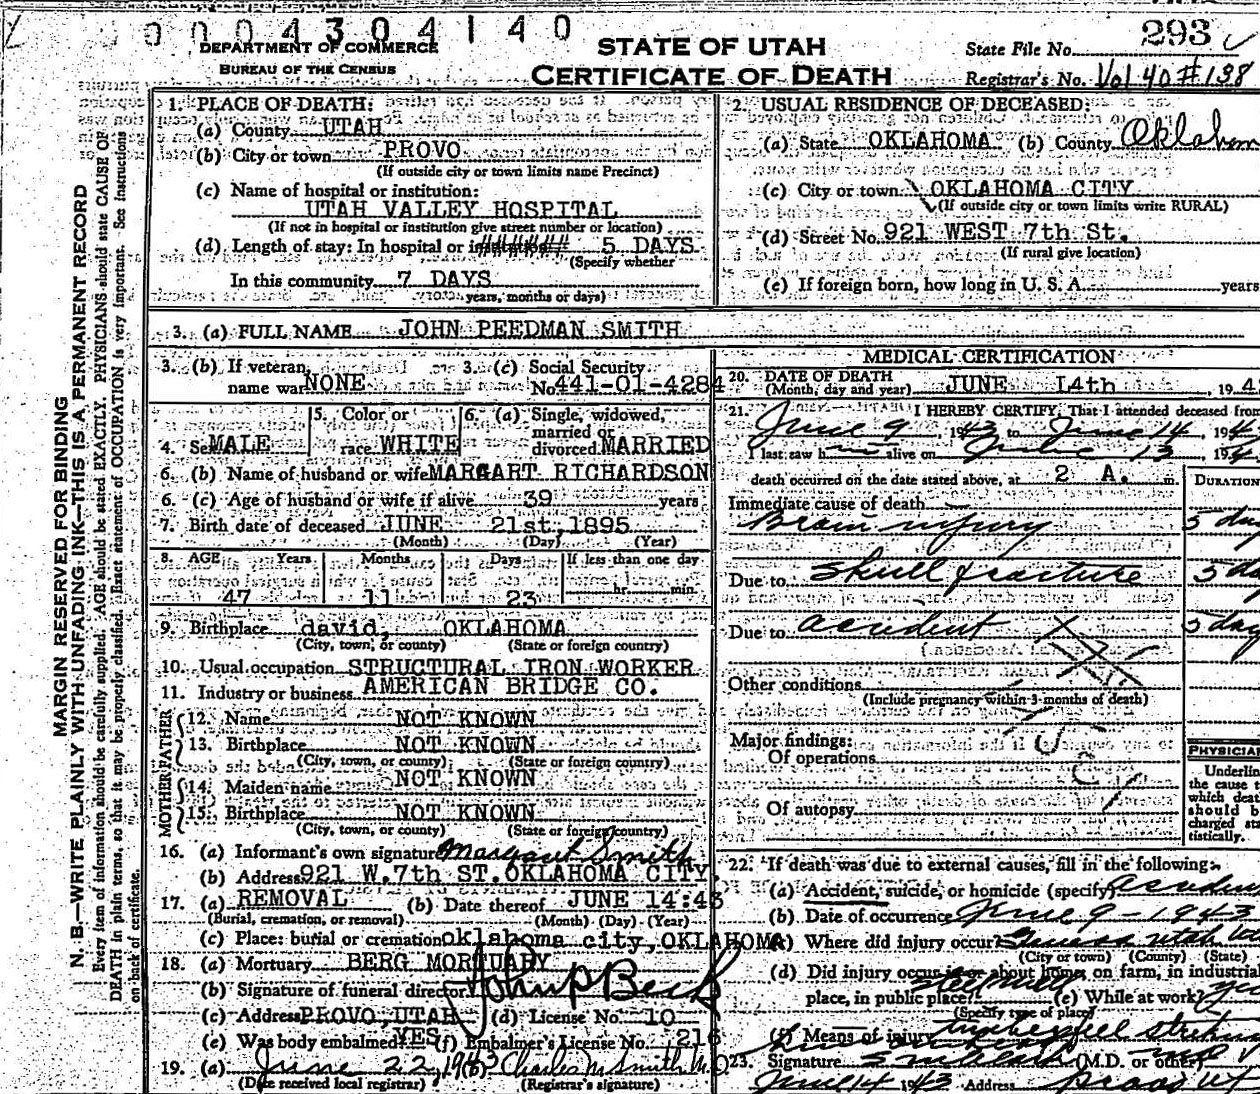 0004304140
DEPARTMENT OF COMMERCE
BUREAU OF THE CENSUS
STATE OF UTAH
CERTIFICATE OF DEATH
State File No. 293
Registrar's No. Vol 40 #138
MARGIN RESERVED FOR BINDING
N. B.—WRITE PLAINLY WITH UNFADING INK—THIS IS A PERMANENT RECORD
Every item of information should be carefully supplied. AGE should be stated EXACTLY. PHYSICIANS should state CAUSE OF
DEATH in plain terms, so that it may be properly classified. Exact statement of OCCUPATION is very important. See instructions
on back of certificate.
1. PLACE OF DEATH:
(a) County UTAH
(b) City or town PROVO
(If outside city or town limits name Precinct)
(c) Name of hospital or institution:
UTAH VALLEY HOSPITAL
(If not in hospital or institution give street number or location)
(d) Length of stay: In hospital or 5 DAYS
(Specify whether
In this community 7 DAYS
years, months or days)
2. USUAL RESIDENCE OF DECEASED:
(a) State OKLAHOMA (b) County Oklahom
(c) City or town OKLAHOMA CITY
(If outside city or town limits write RURAL)
(d) Street No. 921 WEST 7th St.
(If rural give location)
(e) If foreign born, how long in U. S. A. years
3. (a) FULL NAME JOHN PEEDMAN SMITH
3. (b) If veteran, name war NONE
3. (c) Social Security No. 441-01-4284
4. Sex MALE
5. Color or race WHITE
6. (a) Single, widowed, married or divorced MARRIED
6. (b) Name of husband or wife MARGART RICHARDSON
6. (c) Age of husband or wife if alive 39 years
7. Birth date of deceased JUNE 21st, 1895
(Month) (Day) (Year)
8. AGE Years Months Days If less than one day
47 11 23 hr. min.
9. Birthplace david, OKLAHOMA
(City, town, or county) (State or foreign country)
10. Usual occupation STRUCTURAL IRON WORKER
11. Industry or business AMERICAN BRIDGE CO.
FATHER
12. Name NOT KNOWN
13. Birthplace NOT KNOWN
(City, town, or county) (State or foreign country)
MOTHER
14. Maiden name NOT KNOWN
15. Birthplace NOT KNOWN
(City, town, or county) (State or foreign country)
16. (a) Informant's own signature Margaret Smith
(b) Address 921 W.7th ST.OKLAHOMA CITY
17. (a) REMOVAL (b) Date thereof JUNE 14:43
(Burial, cremation, or removal) (Month) (Day) (Year)
(c) Place: burial or cremation oklahoma city,OKLAHOMA
18. (a) Mortuary BERG MORTUARY
(b) Signature of funeral director John P Berg
(c) Address PROVO,UTAH (d) License No. 10
(e) Was body embalmed? YES (f) Embalmer's License No. 216
19. (a) June 22, 1943 Charles M Smith M.D.
(Date received local registrar) (Registrar's signature)
MEDICAL CERTIFICATION
20. DATE OF DEATH
(Month, day and year) JUNE 14th, 194
21. I HEREBY CERTIFY, That I attended deceased from
June 9 1943 to June 14, 194
I last saw him alive on June 13, 194
death occurred on the date stated above, at 2 A. m.
DURATION
Immediate cause of death
Brain injury 5 day
Due to Skull fracture 5 da
Due to accident 5 day
Other conditions
(Include pregnancy within 3 months of death)
Major findings:
Of operations
Of autopsy
PHYSICIAN
Underlin
the cause t
which deat
should b
charged sta
tistically.
22. If death was due to external causes, fill in the following:
(a) Accident, suicide, or homicide (specify) Acciden
(b) Date of occurrence June 9 - 1943
(c) Where did injury occur? Geneva Utah
(City or town) (County) (State)
(d) Did injury occur in or about home, on farm, in industrial
place, in public place? steel mill (e) While at work? yes
(Specify type of place)
(f) Means of injury
23. Signature (M.D. or other)
June 14 1943 Address Provo Ut